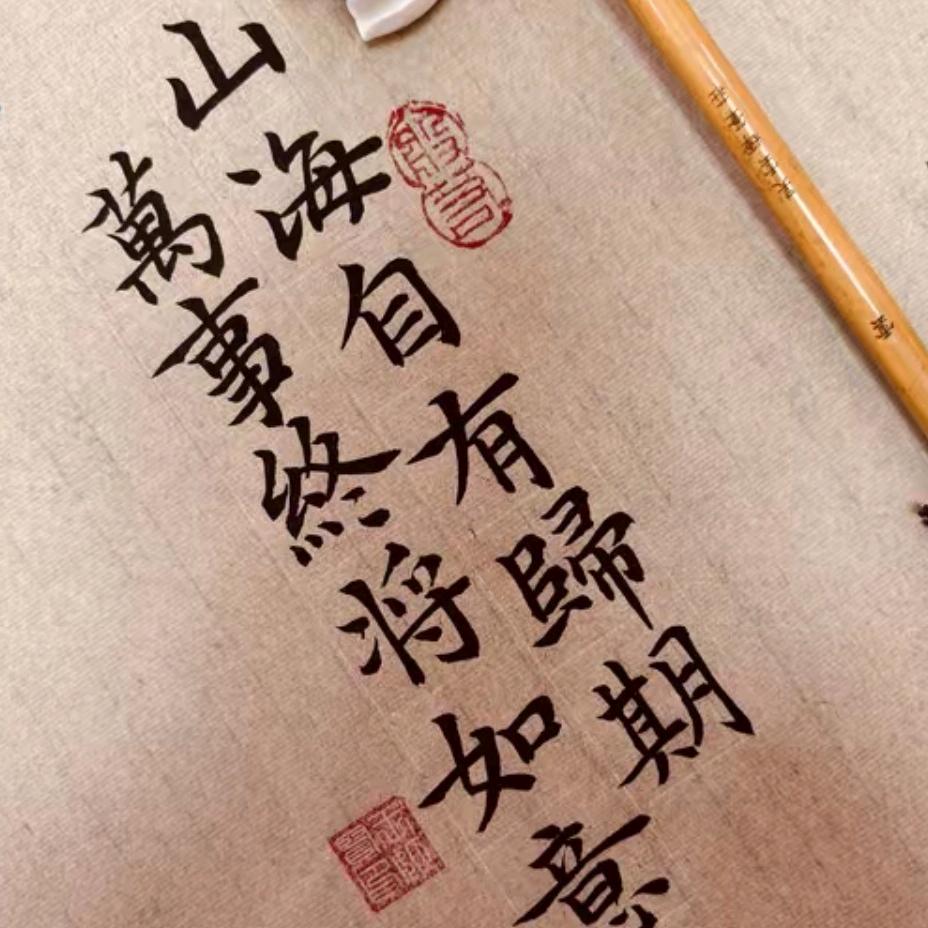 山海自有歸期
萬事終將如意